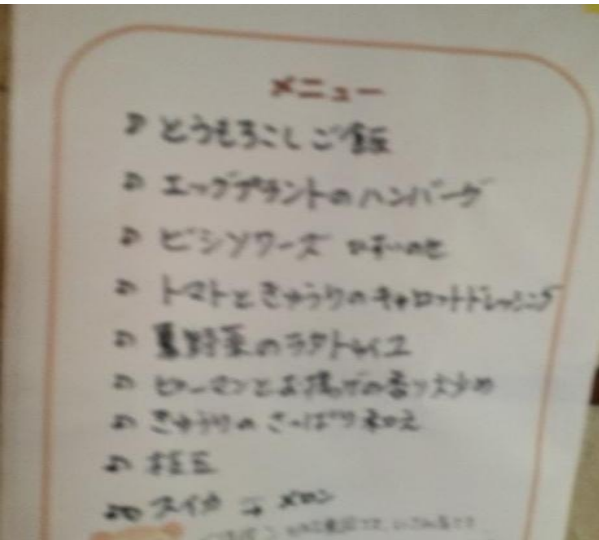 メニュー
とうもろこしご飯
エッグプラントのハンバーグ
ビシソワーズ
トマトときゅうりのキャロットドレッシング
夏野菜のラタトゥイユ
ピーマンとお揚げの香り炒め
きゅうりのさっぱり和え
枝豆
スイカ メロン